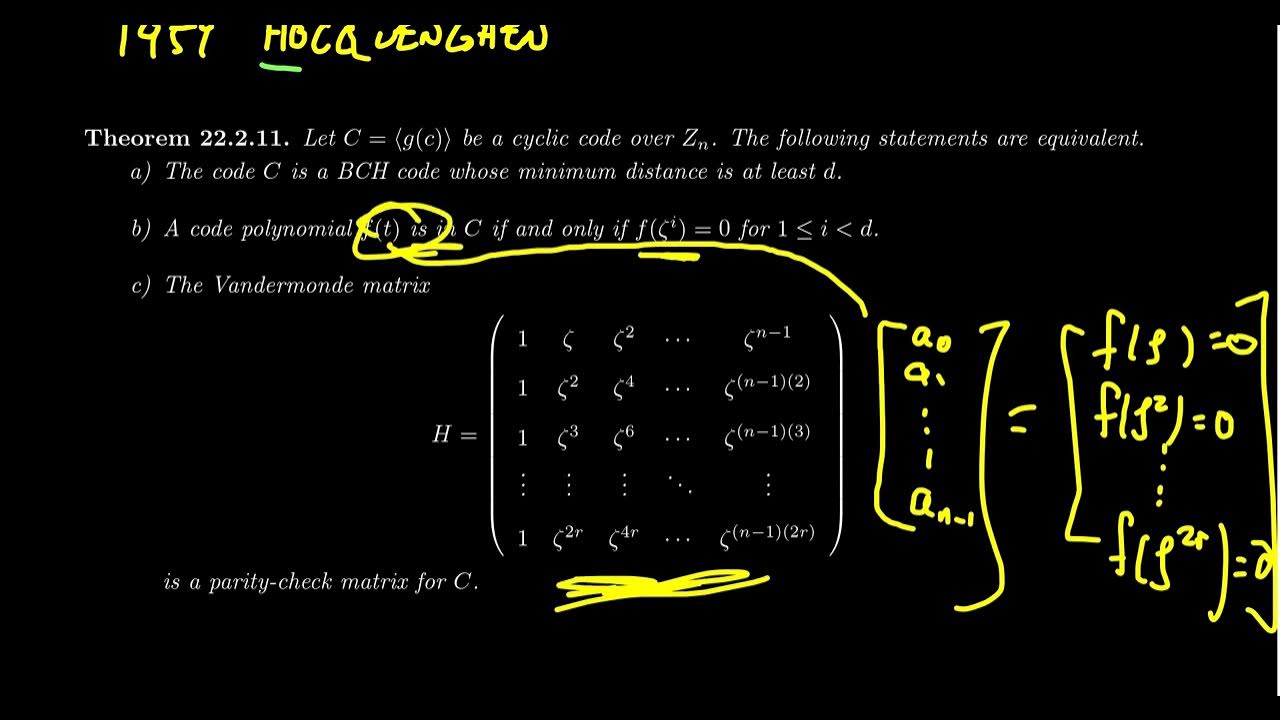 1959 HOCQUENGHEN
Theorem 22.2.11. Let C = ⟨g(c)⟩ be a cyclic code over Zₙ. The following statements are equivalent.
a) The code C is a BCH code whose minimum distance is at least d.
b) A code polynomial f(t) is in C if and only if f(ζⁱ) = 0 for 1 ≤ i < d.
c) The Vandermonde matrix
1 ζ ζ² ⋯ ζⁿ⁻¹
1 ζ² ζ⁴ ⋯ ζ⁽ⁿ⁻¹⁾⁽²⁾
H = 1 ζ³ ζ⁶ ⋯ ζ⁽ⁿ⁻¹⁾⁽³⁾
⋮ ⋮ ⋮ ⋱ ⋮
1 ζ²ʳ ζ⁴ʳ ⋯ ζ⁽ⁿ⁻¹⁾⁽²ʳ⁾
a₀
a₁
⋮
aₙ₋₁
=
f(ζ) = 0
f(ζ²) = 0
⋮
f(ζ²ʳ) = 0
is a parity-check matrix for C.